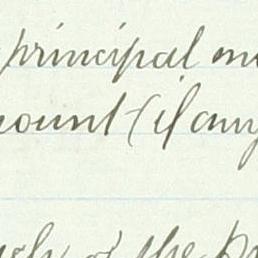 principal mo
ount (if any
of the pr